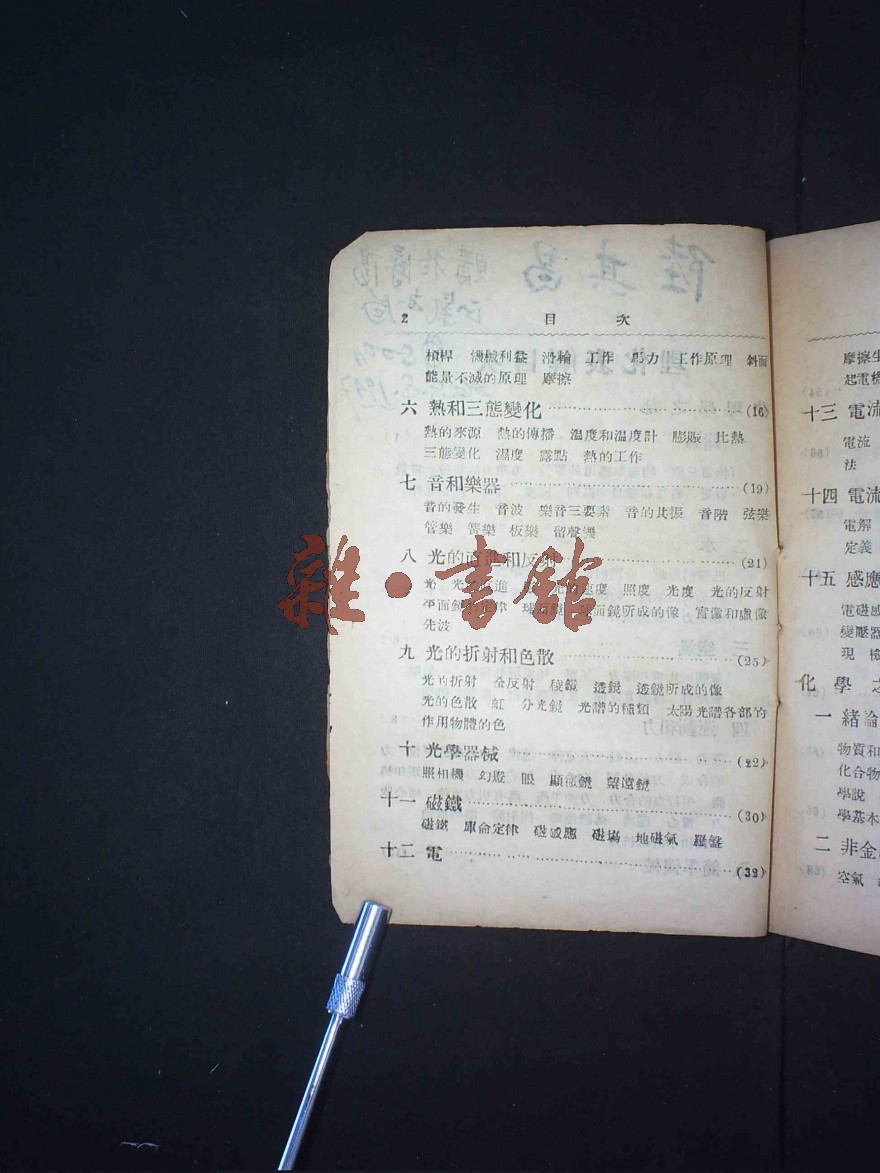 2 目 次
槓桿 機械利益 滑輪 工作 馬力 工作原理 斜面
能量不滅的原理 摩擦
六 熱和三態變化 (16)
熱的來源 熱的傳播 溫度和溫度計 膨脹 比熱
三態變化 濕度 露點 熱的工作
七 音和樂器 (19)
音的發生 音波 樂音三要素 音的共振 音階 弦樂
管樂 簧樂 板樂 留聲機
八 光的直進和反射 (21)
光 光的直進 光的速度 照度 光度 光的反射
平面鏡 定律 球面鏡 球面鏡所成的像 實像和虛像
光波
九 光的折射和色散 (25)
光的折射 全反射 稜鏡 透鏡 透鏡所成的像
光的色散 虹 分光鏡 光譜的種類 太陽光譜各部的
作用物體的色
十 光學器械 (22)
照相機 幻燈 眼 顯微鏡 望遠鏡
十一 磁鐵 (30)
磁鐵 庫侖定律 磁感應 磁場 地磁氣 羅盤
十二 電 (32)
摩擦生
起電機
十三 電流
電流
法
十四 電流
電解
定義
十五 感應
電磁感
變壓器
現 檢
化 學 之
一 緒論
物質和
化合物
學說
學基本
二 非金
空氣
雜·書館